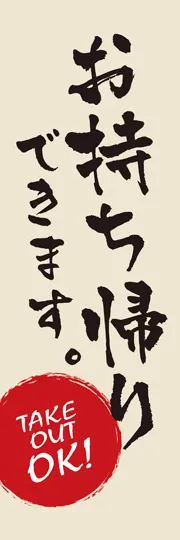 お持ち帰り
できます。
TAKE
OUT
OK!